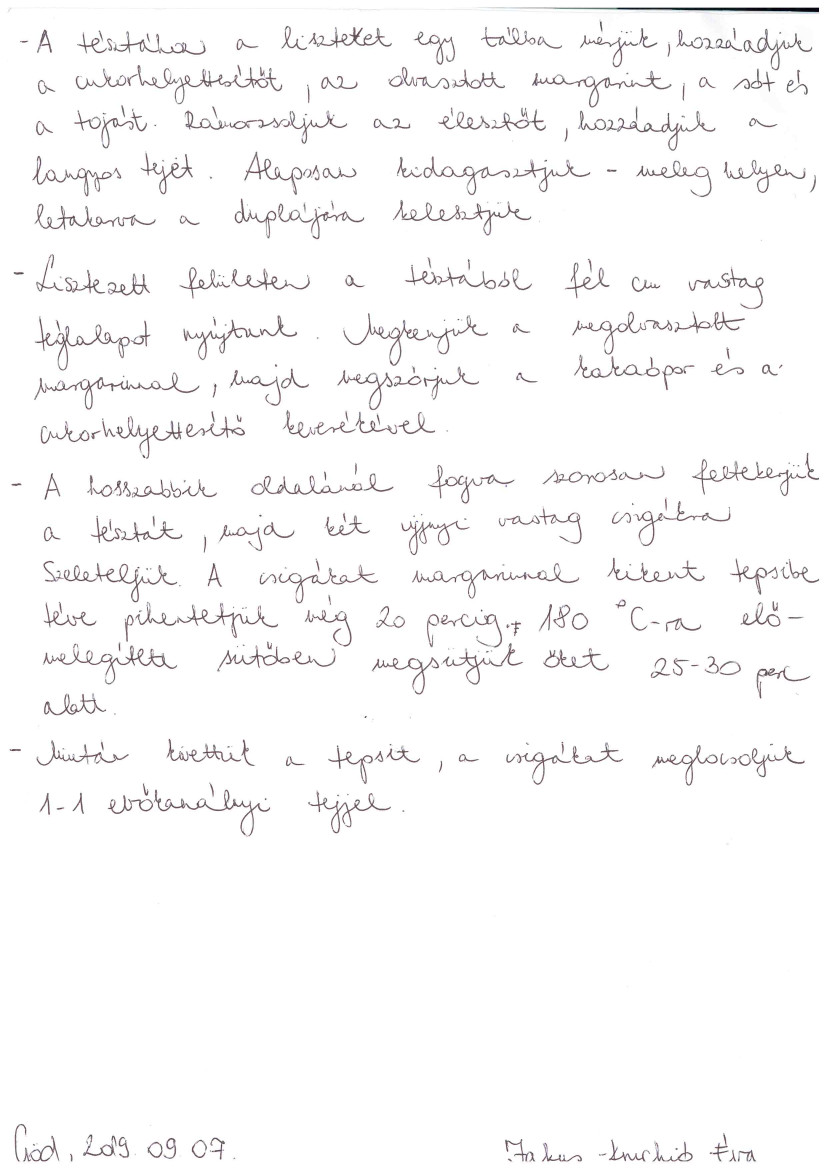 - A tésztához a liszteket egy tálba mérjük, hozzáadjuk
a cukorhelyettesítőt, az olvasztott margarint, a sót és
a tojást. Rámorzsoljuk az élesztőt, hozzáadjuk a
langyos tejet. Alaposan kidagasztjuk - meleg helyen,
letakarva a duplájára kelesztjük
- Lisztezett felületen a tésztából fél cm vastag
téglalapot nyújtunk. Megkenjük a megolvasztott
margarinnal, majd megszórjuk a kakaópor és a
cukorhelyettesítő keverékével.
- A hosszabbik oldalánál fogva szorosan feltekerjük
a tésztát, majd két ujjnyi vastag csigákra
szeleteljük. A csigákat margarinnal kikent tepsibe
téve pihentetjük még 20 percig. 180 °C-ra elő-
melegített sütőben megsütjük őket 25-30 perc
alatt.
- Miután kivettük a tepsit, a csigákat meglocsoljuk
1-1 evőkanálnyi tejjel.
2019. 09 07.
Éva